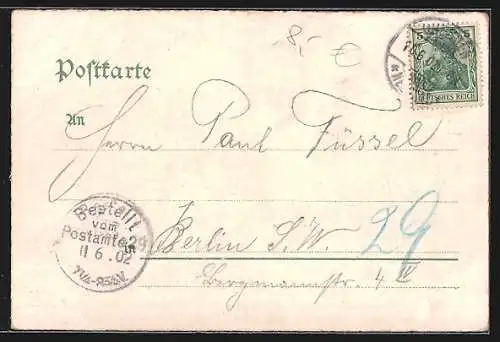 8,- €
Postkarte
An
Herrn Paul Füssel
Berlin S.W. 29
Bergmannstr. 4 IV
Bestellt
vom
Postamte 29
11.6.02
DEUTSCHES REICH